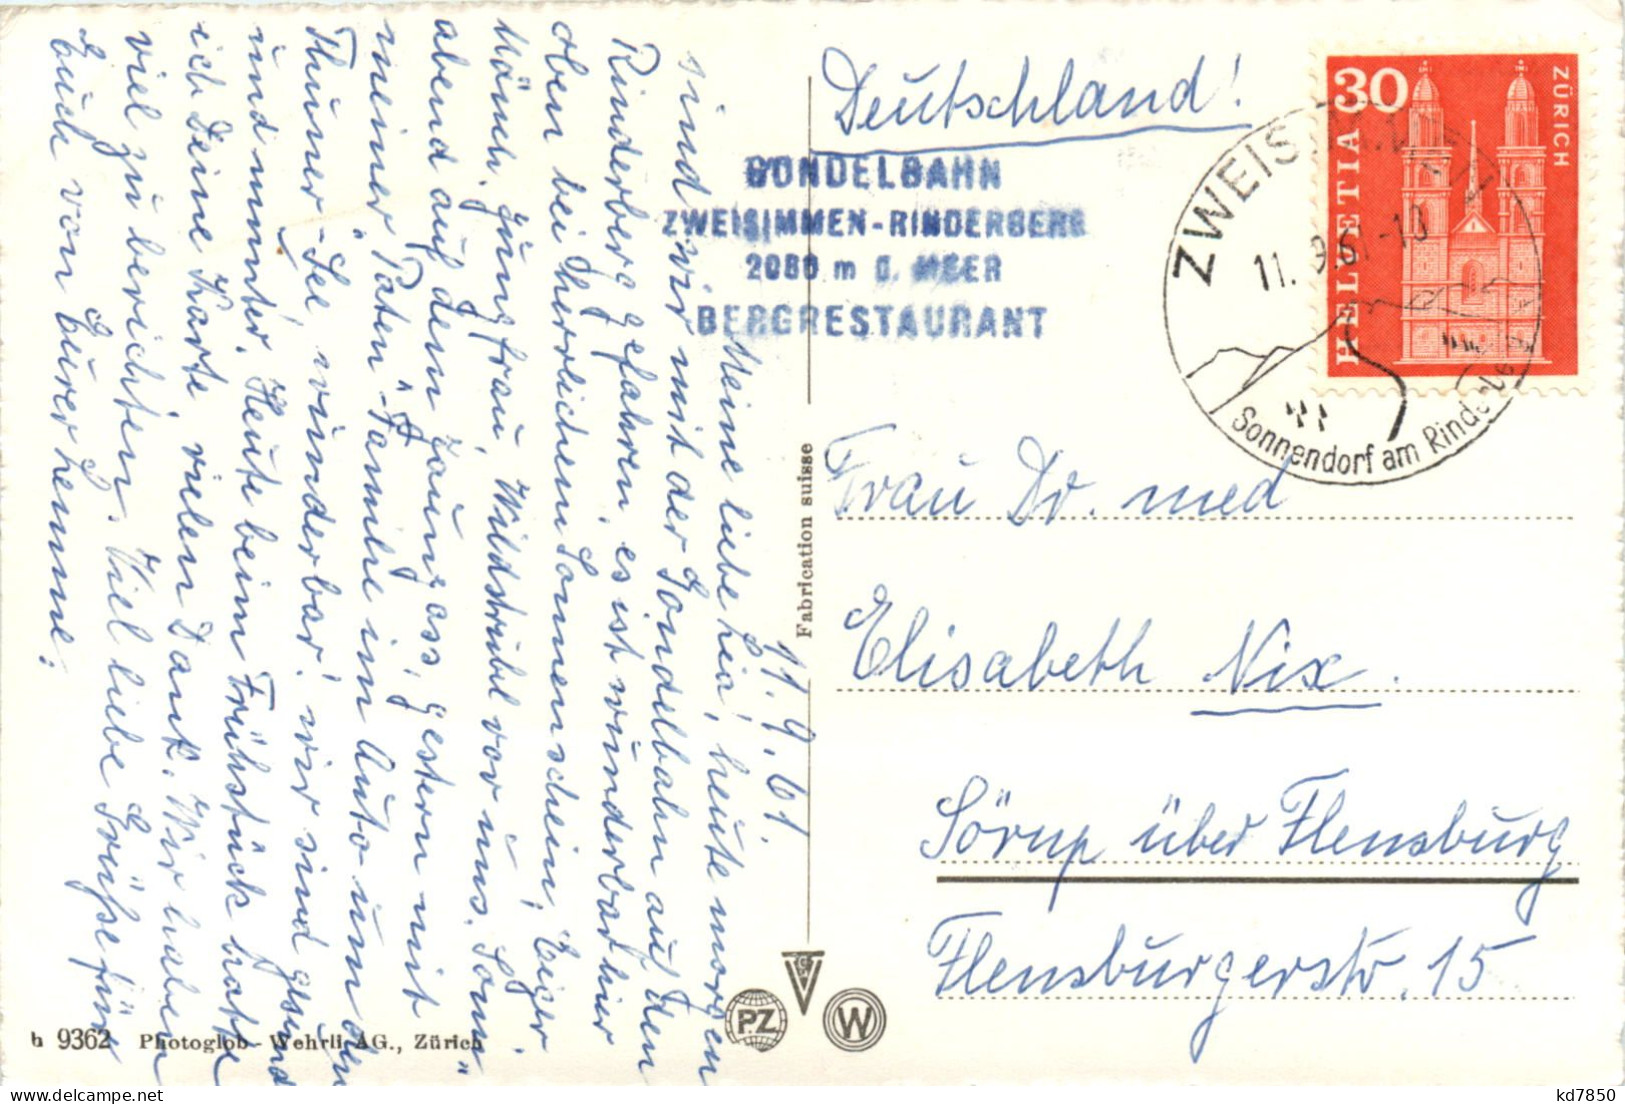 11. 9. 61.
Meine liebe Lia, heute morgen
sind wir mit der Gondelbahn auf den
Rinderberg gefahren, es ist wunderbar hier
oben bei herrlichem Sonnenschein, Eiger
Mönch, Jungfrau, Wildstrubel vor uns. Sonn-
abend auf dem Jaunpass, gestern mit
meiner "Paten"-Familie im Auto um den
Thuner-See, wunderbar! wir sind gesund
und munter. Heute beim Frühstück hatte
ich Deine Karte, vielen Dank. Wir haben
viel zu berichten. Viel liebe Grüße für
Euch von Eurer Hemme.
Deutschland!
GONDELBAHN
ZWEISIMMEN-RINDERBERG
2080 m ü. MEER
BERGRESTAURANT
30
ZÜRICH
HELVETIA
ZWEISIMMEN
11. 9.61-10
Sonnendorf am Rinderberg
Fabrication suisse
Frau Dr. med
Elisabeth Nix.
Sörup über Flensburg
Flensburgerstr. 15
h 9362 Photoglob-Wehrli AG., Zürich
P.Z
W
kd7850